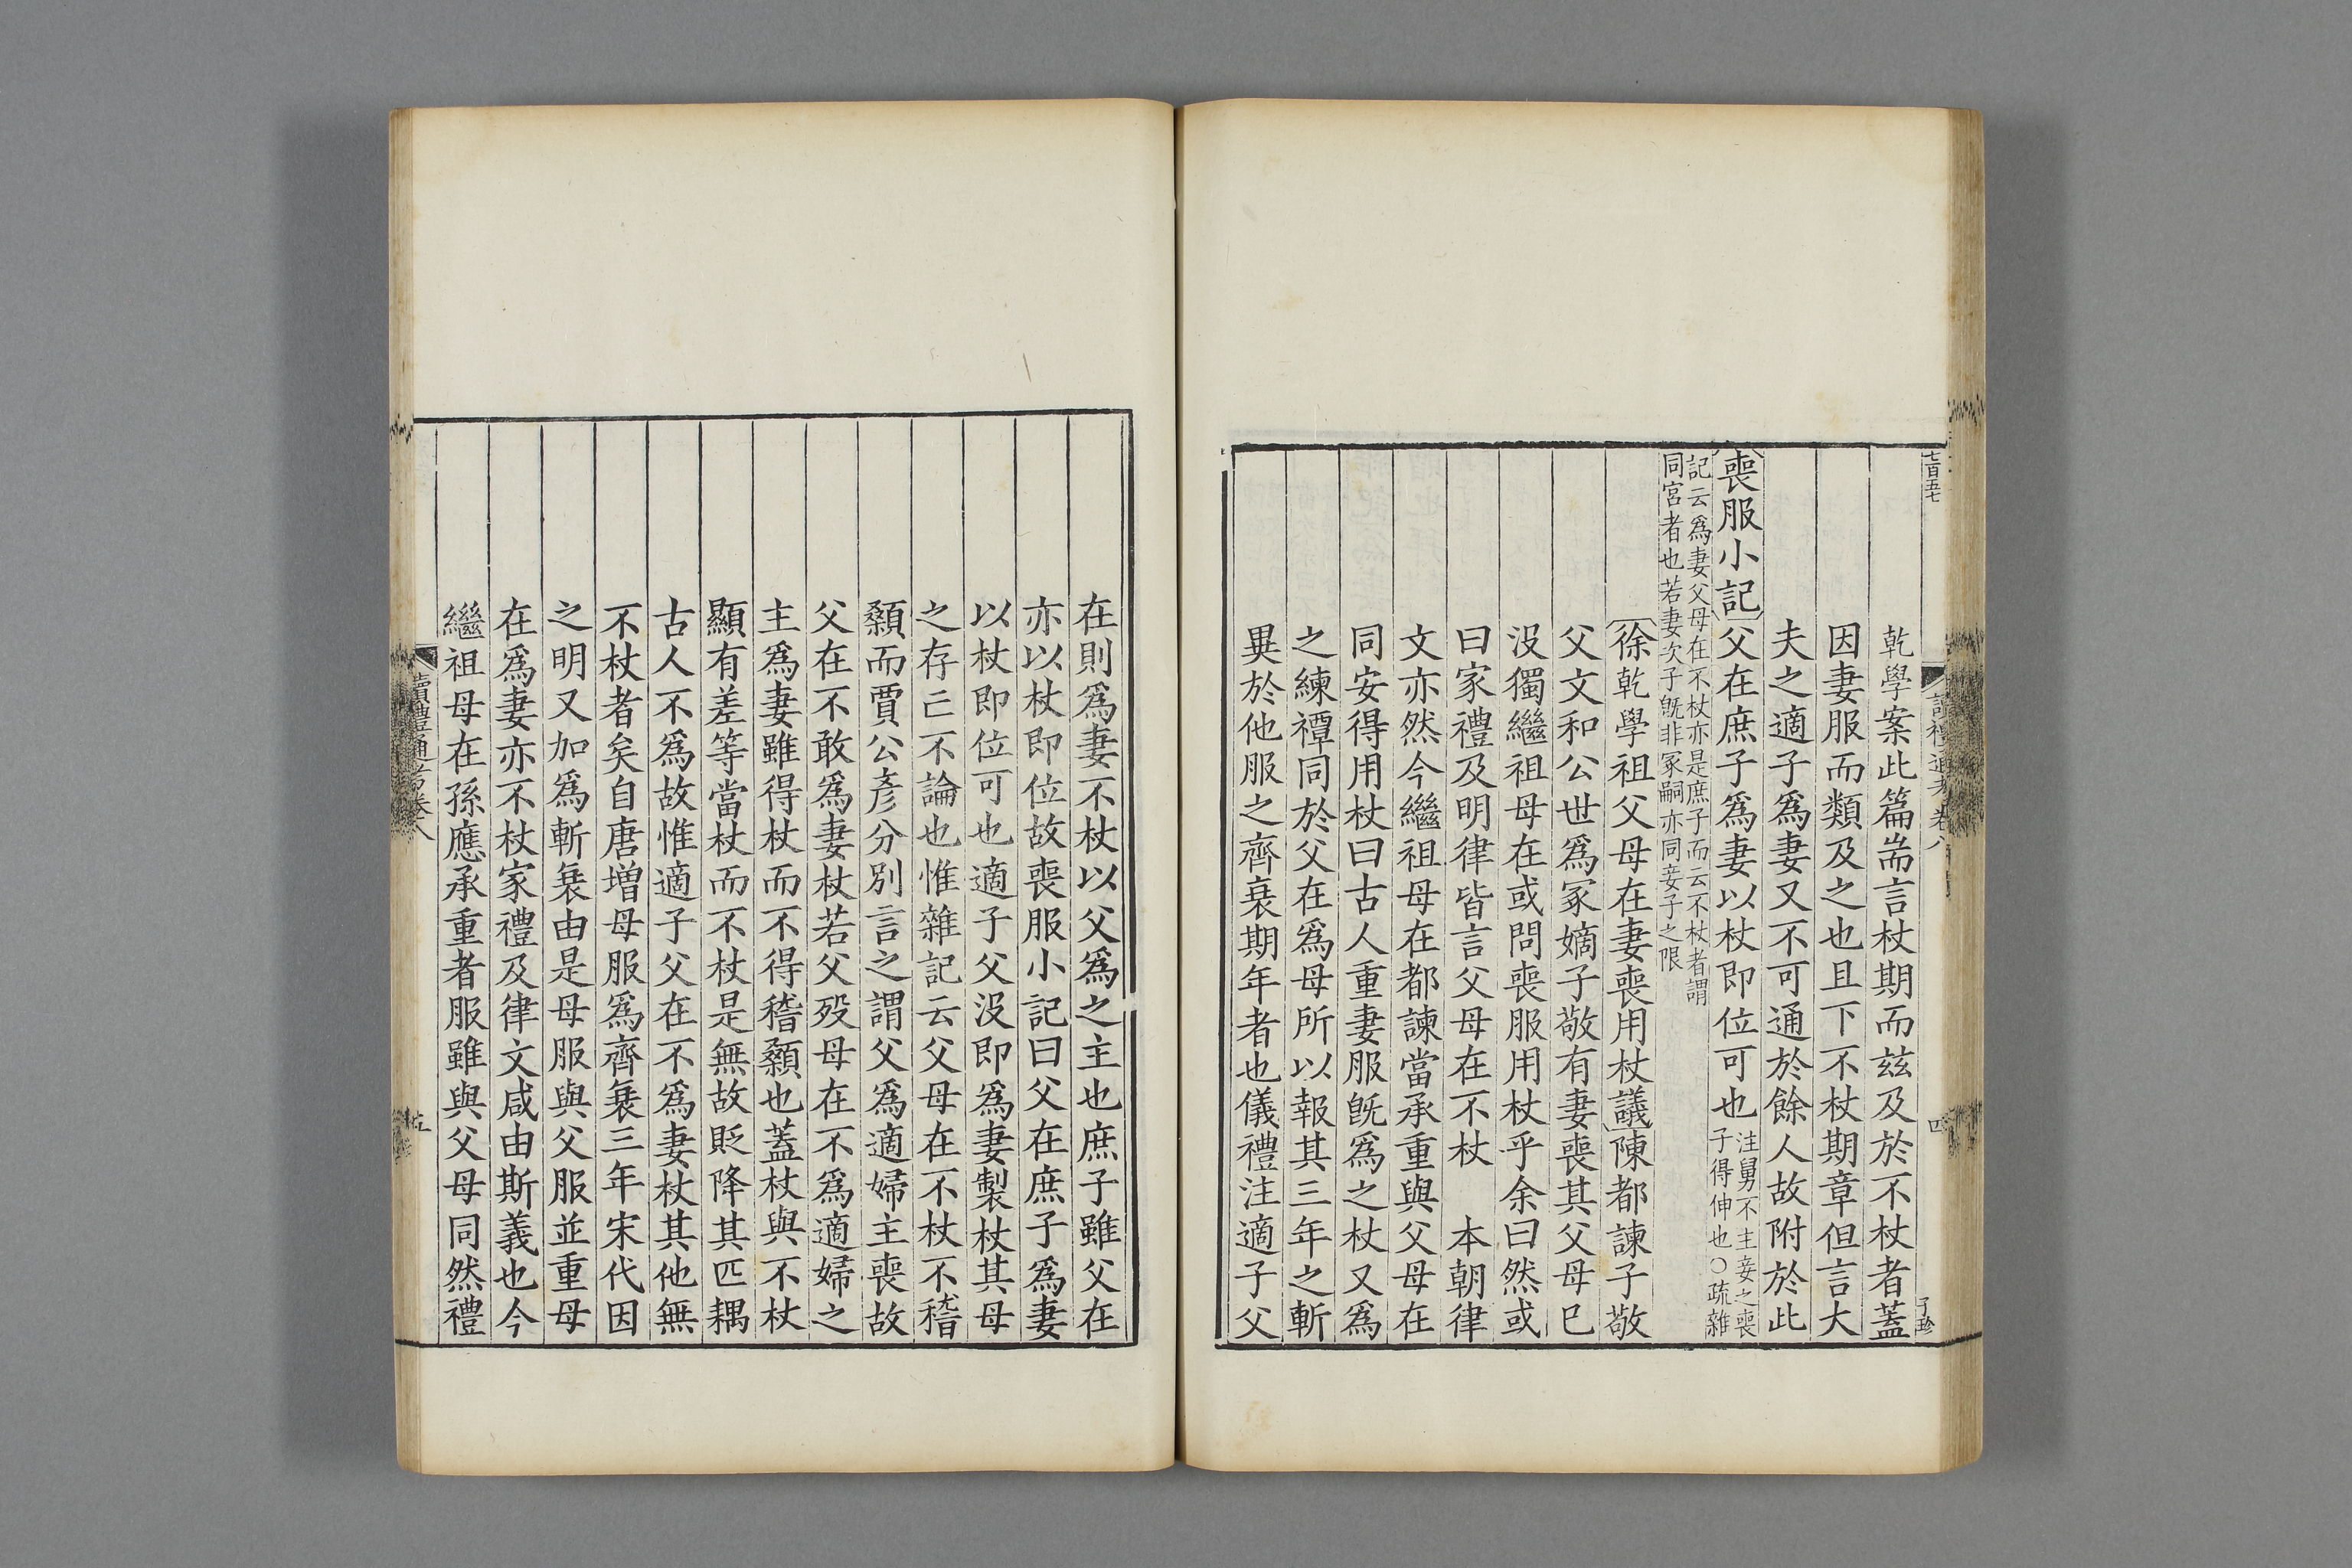 七百五七
讀禮通考卷八
四
子珍
乾學案此篇耑言杖期而玆及於不杖者蓋
因妻服而類及之也且下不杖期章但言大
夫之適子爲妻又不可通於餘人故附於此
喪服小記父在庶子爲妻以杖即位可也
注舅不主妾之喪
子得伸也○疏雜
記云爲妻父母在不杖亦是庶子而云不杖者謂
同宮者也若妻次子旣非冢嗣亦同妾子之限
徐乾學祖父母在妻喪用杖議陳都諫子敬
父文和公世爲冢嫡子敬有妻喪其父母已
沒獨繼祖母在或問喪服用杖乎余曰然或
曰家禮及明律皆言父母在不杖 本朝律
文亦然今繼祖母在都諫當承重與父母在
同安得用杖曰古人重妻服旣爲之杖又爲
之練禫同於父在爲母所以報其三年之斬
異於他服之齊衰期年者也儀禮注適子父
在則爲妻不杖以父爲之主也庶子雖父在
亦以杖即位故喪服小記曰父在庶子爲妻
以杖即位可也適子父沒即爲妻製杖其母
之存亡不論也惟雜記云父母在不杖不稽
顙而賈公彥分別言之謂父爲適婦主喪故
父在不敢爲妻杖若父歿母在不爲適婦之
主爲妻雖得杖而不得稽顙也蓋杖與不杖
顯有差等當杖而不杖是無故貶降其匹耦
古人不爲故惟適子父在不爲妻杖其他無
不杖者矣自唐增母服爲齊衰三年宋代因
之明又加爲斬衰由是母服與父服並重母
在爲妻亦不杖家禮及律文咸由斯義也今
繼祖母在孫應承重者服雖與父母同然禮
讀禮通考卷八
五